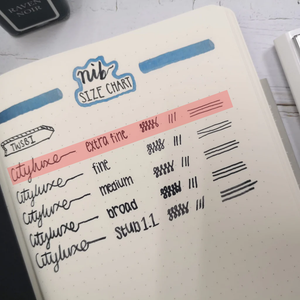 RAVEN
NOIR
nib
SIZE CHART
TWSBI
cityluxe extra fine
cityluxe fine
cityluxe medium
cityluxe broad
cityluxe stub 1.1